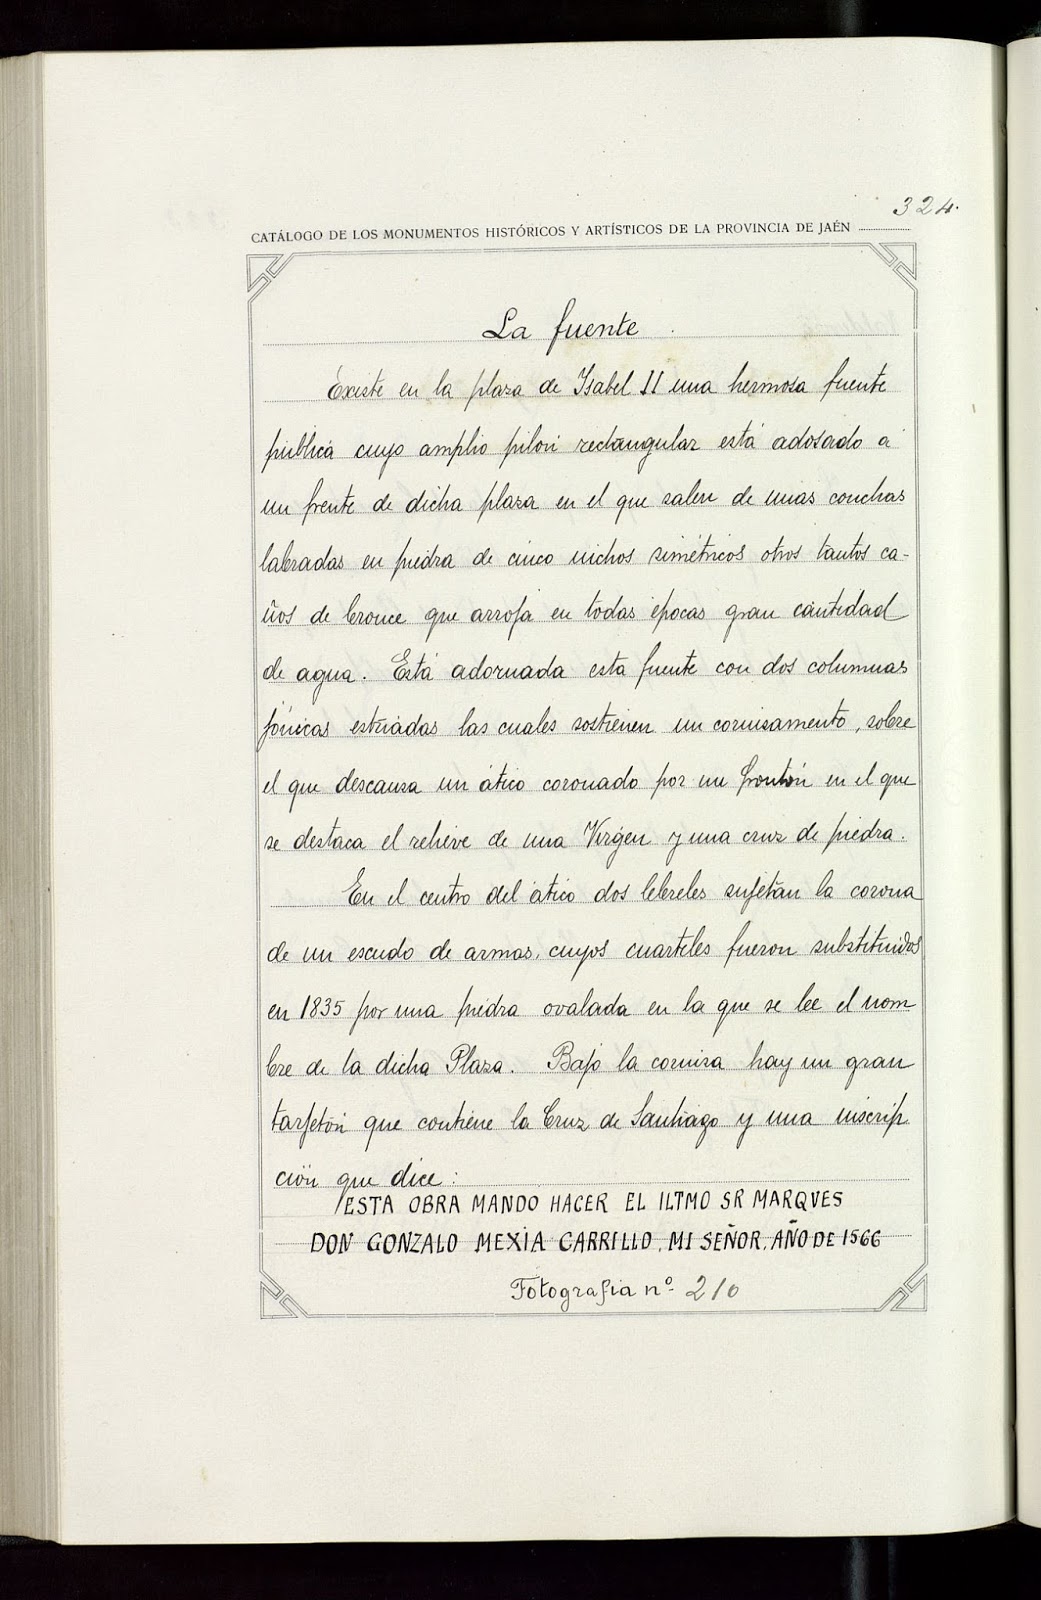 324.
CATÁLOGO DE LOS MONUMENTOS HISTÓRICOS Y ARTÍSTICOS DE LA PROVINCIA DE JAÉN
La fuente
Existe en la plaza de Isabel II una hermosa fuente
pública cuyo amplio pilón rectangular está adosado a
un frente de dicha plaza en el que salen de unas conchas
labradas en piedra de cinco nichos simétricos otros tantos ca-
ños de bronce que arroja en todas épocas gran cantidad
de agua. Está adornada esta fuente con dos columnas
jónicas estriadas las cuales sostienen un cornisamento, sobre
el que descansa un ático coronado por un frontón en el que
se destaca el relieve de una Virgen y una cruz de piedra.
En el centro del ático dos lebreles sujetan la corona
de un escudo de armas, cuyos cuarteles fueron substituidos
en 1835 por una piedra ovalada en la que se lee el nom
bre de la dicha Plaza. Bajo la cornisa hay un gran
tarjetón que contiene la Cruz de Santiago y una inscrip
ción que dice:
ESTA OBRA MANDO HACER EL ILTMO SR MARQVES
DON GONZALO MEXIA CARRILLO, MI SEÑOR, AÑO DE 1566
Fotografia nº 210